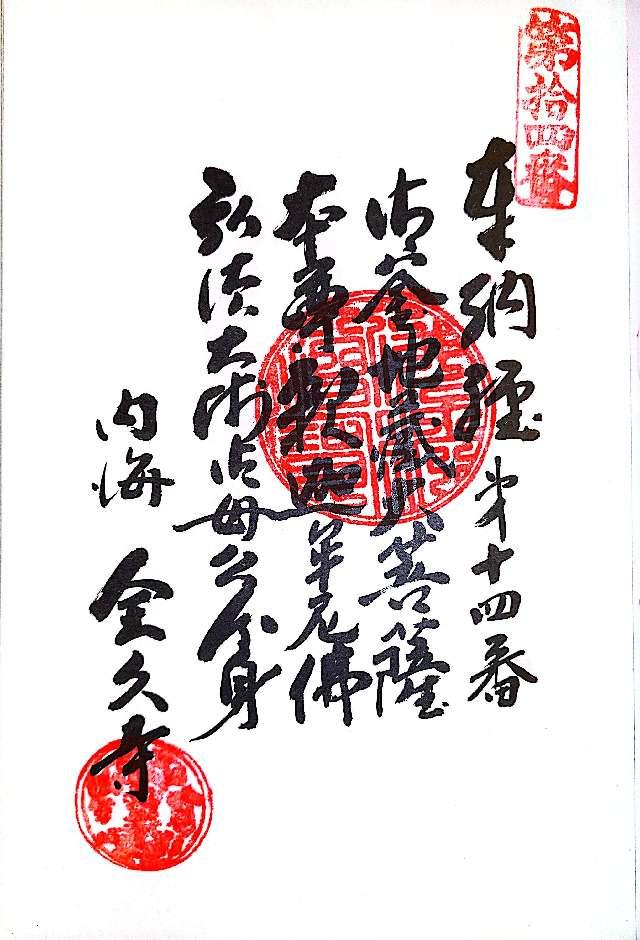 第拾四番
奉納経 第十四番
御釜地蔵大菩薩
本尊釈迦牟尼佛
弘法大師御母公分身
内海 全久寺